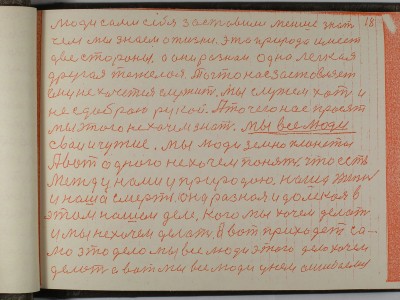 люди сами себя заставили меньше знат 18
чем мы знаем о жизни. эта природа имеет
две стороны, а они разные одна легкая
другая тяжелая. То что нас заставляет
ему не хочется служит. мы служем хоть и
не с доброю рукой. А то чего нас просят
мы этого не хочем знат. мы все люди
свои и чужие. мы люди земно планеты
А вот одного не хочем понять, что есть
между нами и природою, наша жизнь
и наша смерть. она разная и далекая в
этом нашем деле, кого мы хочем делат
и мы не хочем делать. А вот приходет са-
мо это дело мы все люди этого дела хочем
делать а вот мы все люди у нем ошибаемс